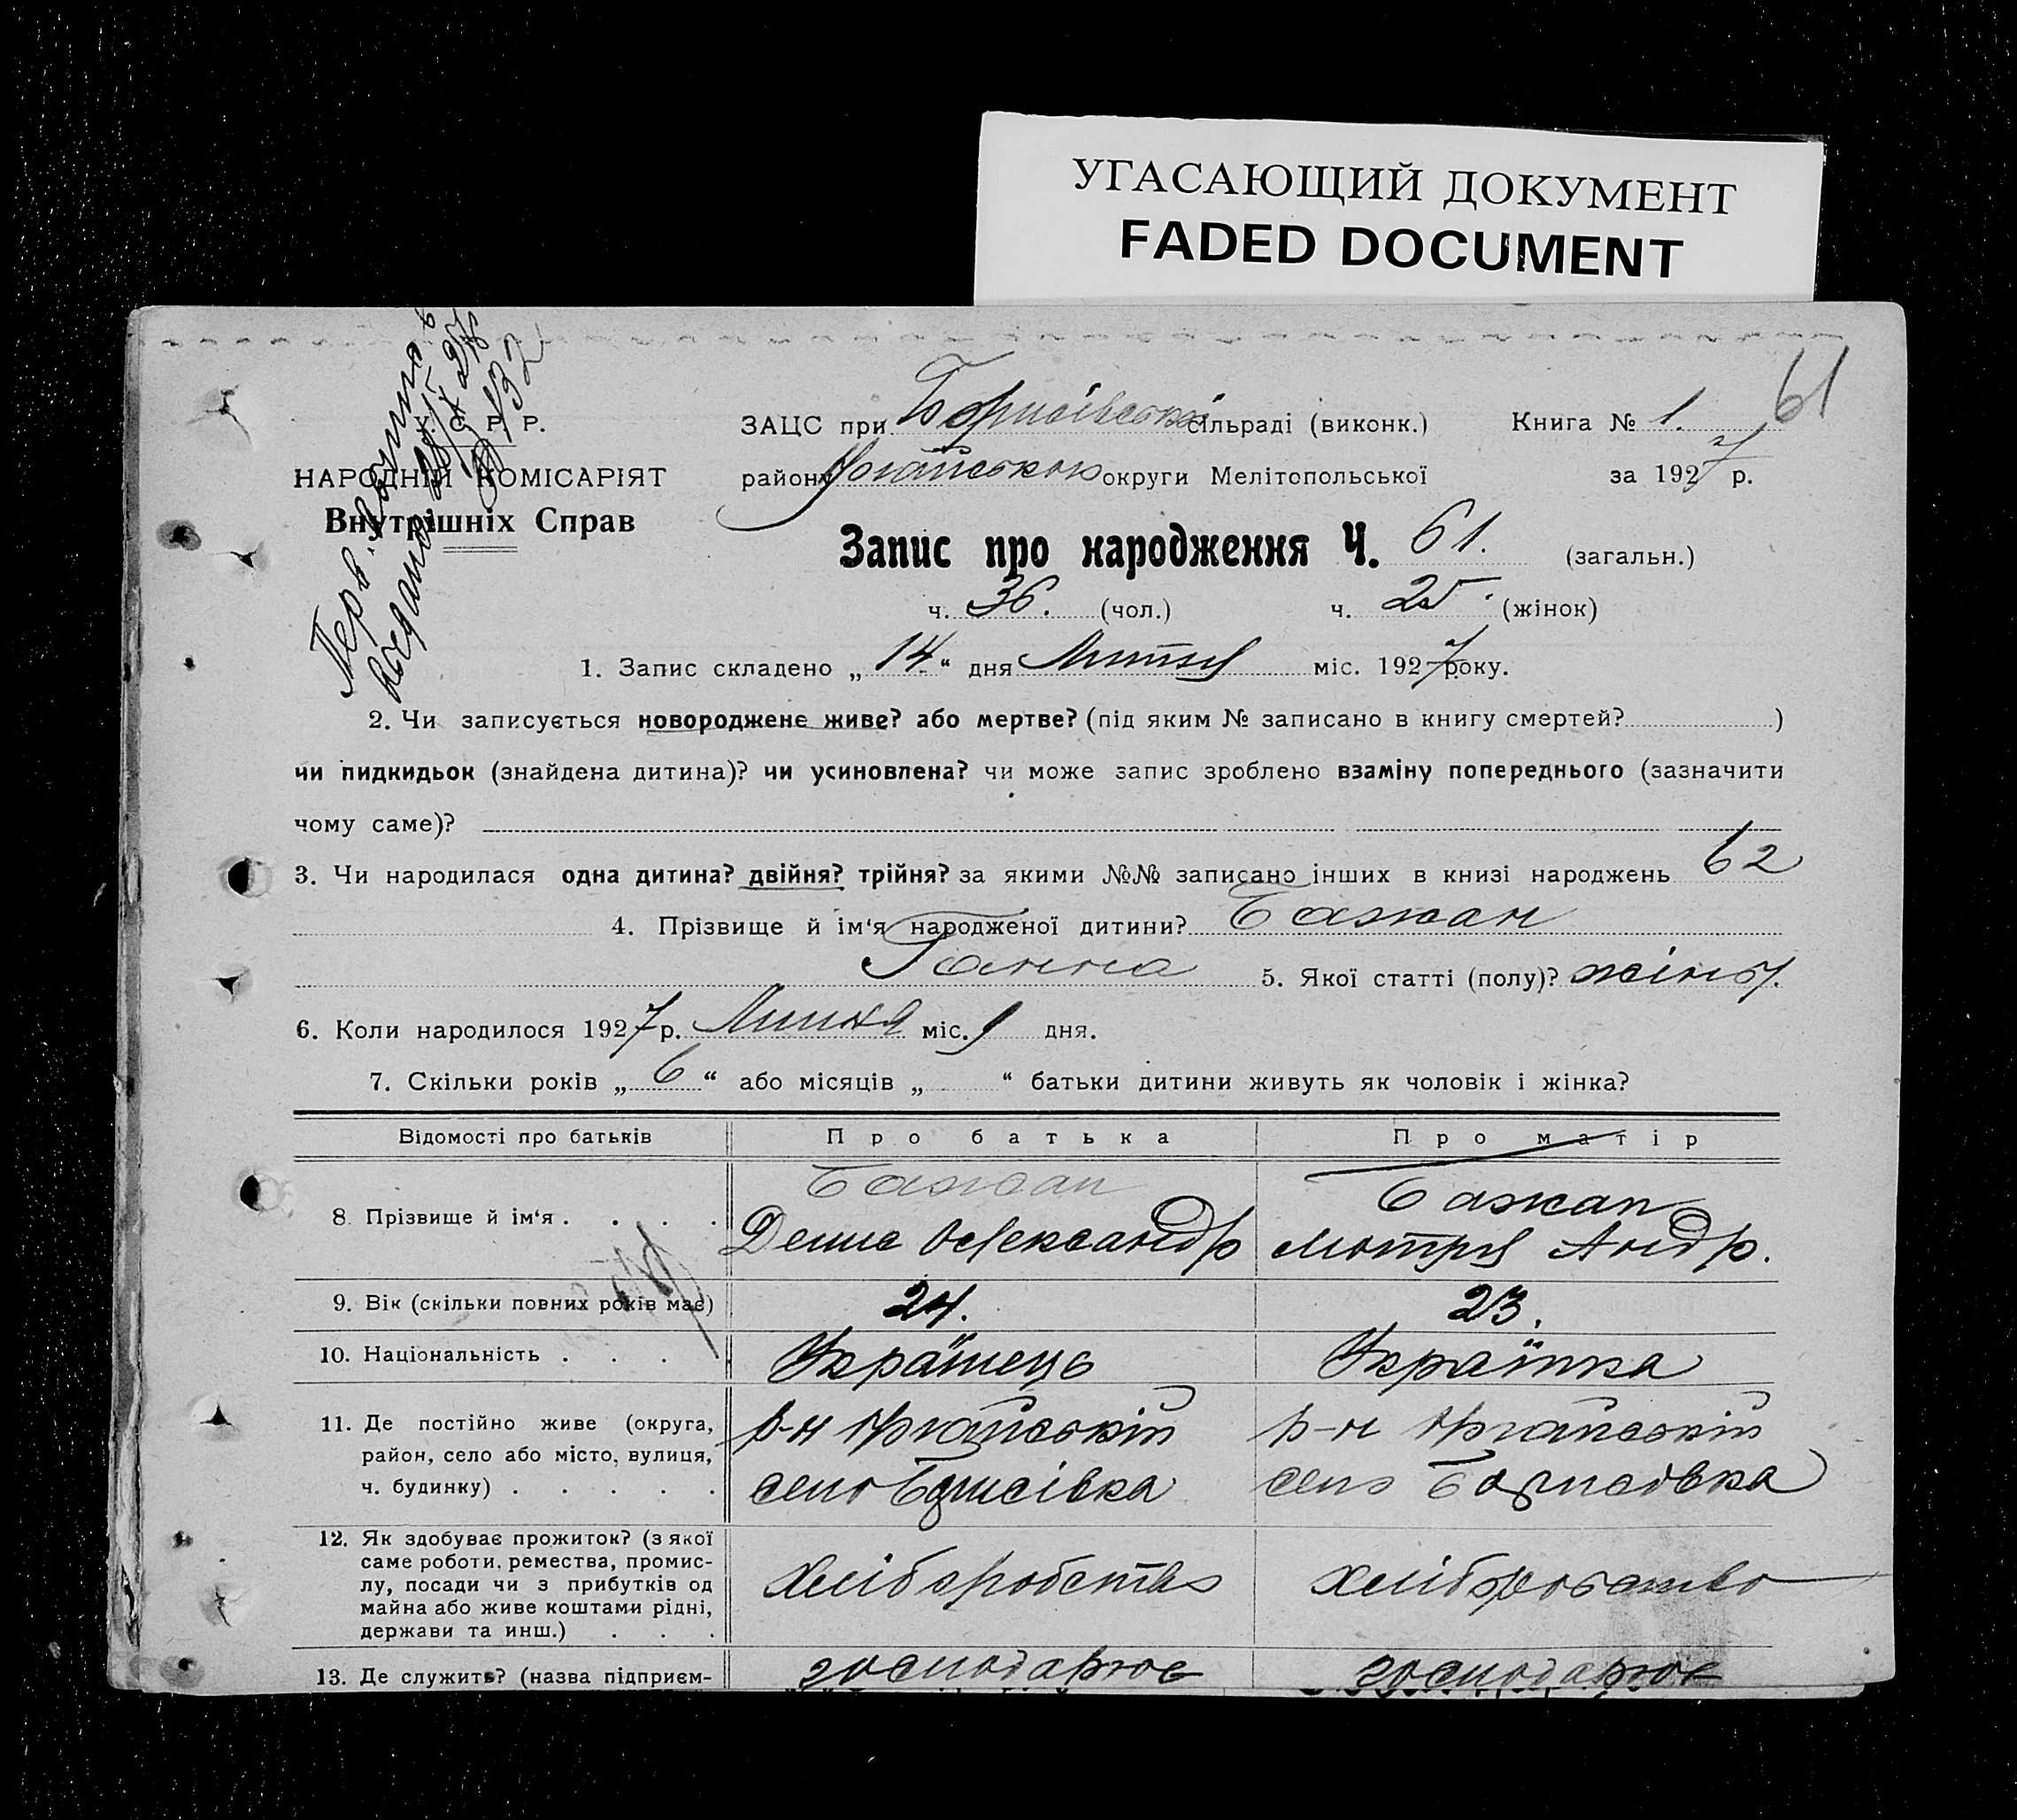 УГАСАЮЩИЙ ДОКУМЕНТ
FADED DOCUMENT
61
У. С. Р. Р.
НАРОДНІЙ КОМІСАРІЯТ
Внутрішніх Справ
ЗАЦС при Борисівській сільраді (виконк.) Книга № 1.
району округи Мелітопольської за 1927 р.
Запис про народження Ч. 61. (загальн.)
ч. 36. (чол.) ч. 25. (жінок)
1. Запис складено „14“ дня Липня міс. 1927 року.
2. Чи записується новороджене живе? або мертве? (під яким № записано в книгу смертей? )
чи пидкидьок (знайдена дитина)? чи усиновлена? чи може запис зроблено взаміну попереднього (зазначити
чому саме)?
3. Чи народилася одна дитина? двійня? трійня? за якими №№ записано інших в книзі народжень 62
4. Прізвище й ім‘я народженої дитини? Бажан
Ганна 5. Якої статті (полу)? жіноч.
6. Коли народилося 1927 р. Липня міс. 9 дня.
7. Скільки років „6“ або місяців „ “ батьки дитини живуть як чоловік і жінка?
Відомості про батьків Про батька Про матір
8. Прізвище й ім‘я . . . . Бажан Бажан
Денис Олександр Мотря Андр.
9. Вік (скільки повних років має) 24. 23.
10. Національність . . . . Українець Українка
11. Де постійно живе (округа, р-н р-н
район, село або місто, вулиця, село Борисівка село Борисовка
ч. будинку) . . . . .
12. Як здобуває прожиток? (з якої
саме роботи, ремества, промис-
лу, посади чи з прибутків од Хліборобство хліборобство
майна або живе коштами рідні,
держави та инш.) . . .
13. Де служить? (назва підприєм- господарює господарює